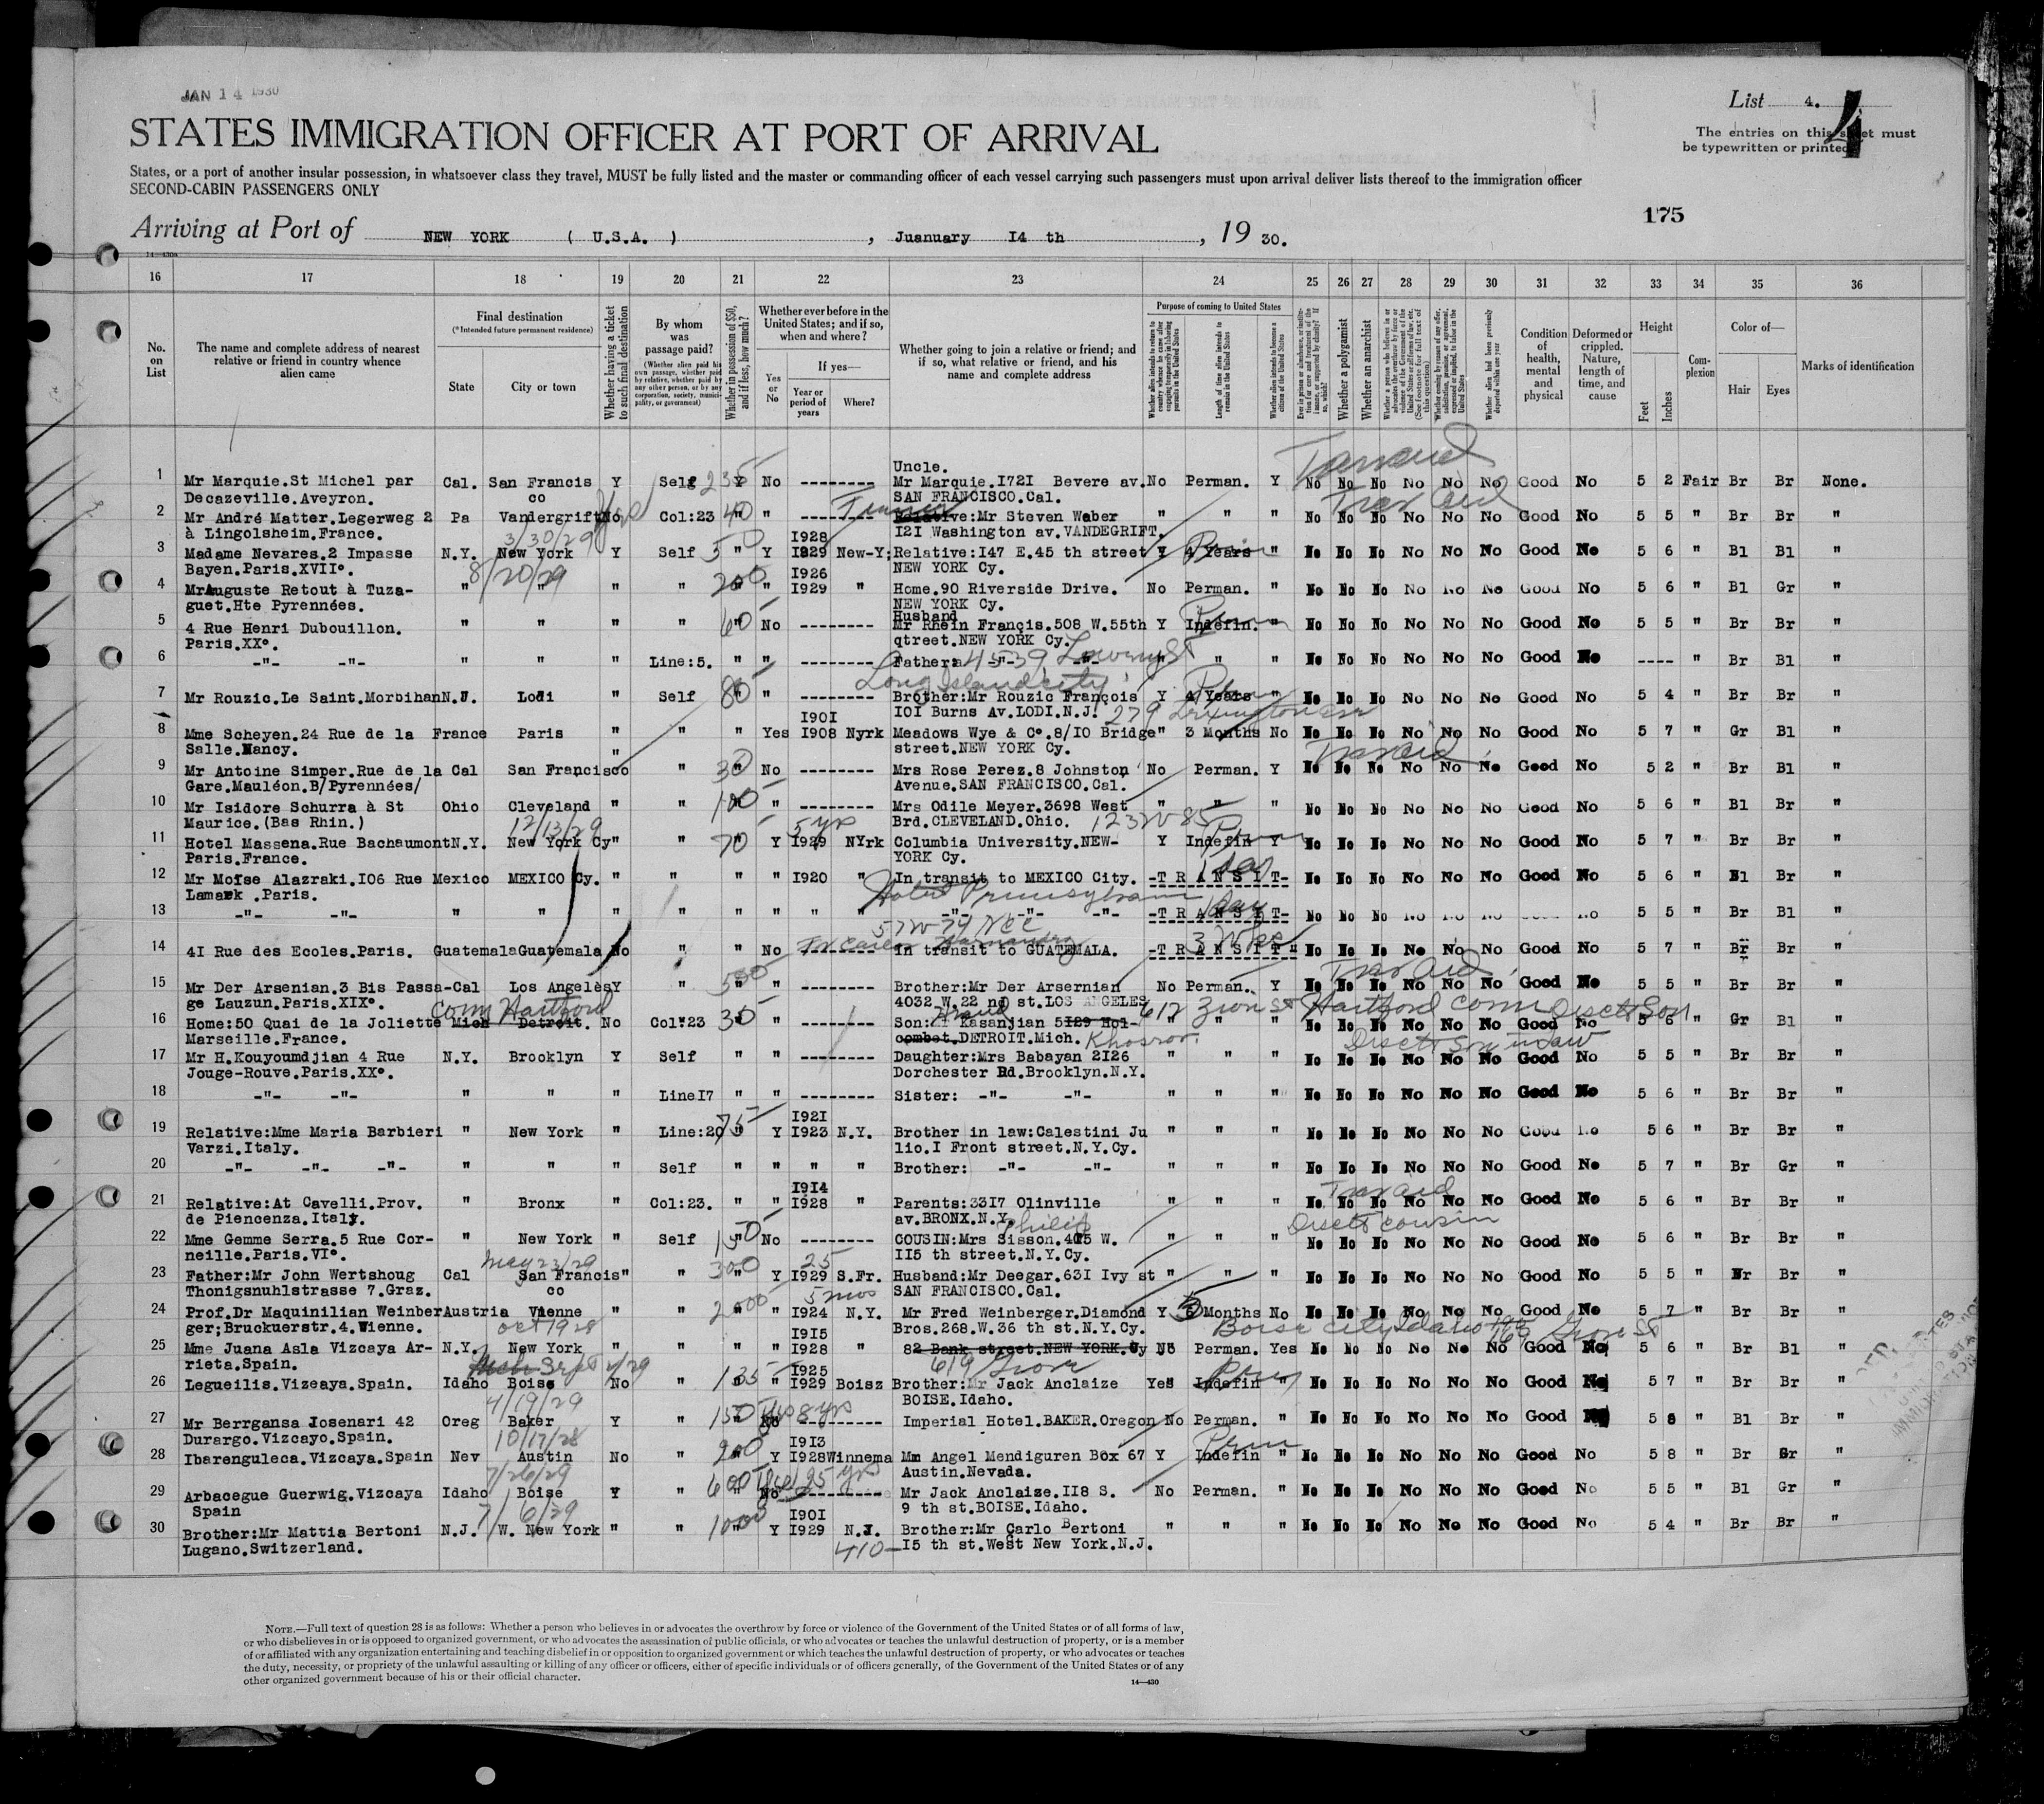 JAN 14 1930
List 4.
4
STATES IMMIGRATION OFFICER AT PORT OF ARRIVAL
The entries on this sheet must
be typewritten or printed
States, or a port of another insular possession, in whatsoever class they travel, MUST be fully listed and the master or commanding officer of each vessel carrying such passengers must upon arrival deliver lists thereof to the immigration officer
SECOND-CABIN PASSENGERS ONLY
175
Arriving at Port of NEW YORK ( U.S.A. ) , Juanuary I4 th , 19 30.
16 17 18 19 20 21 22 23 24 25 26 27 28 29 30 31 32 33 34 35 36
No. on List
The name and complete address of nearest relative or friend in country whence alien came
Final destination
(*Intended future permanent residence)
State City or town
Whether having a ticket to such final destination
By whom was passage paid?
(Whether alien paid his own passage, whether paid by relative, whether paid by any other person, or by any corporation, society, municipality, or government)
Whether in possession of $50, and if less, how much?
Whether ever before in the United States; and if so, when and where?
Yes or No
If yes—
Year or period of years
Where?
Whether going to join a relative or friend; and if so, what relative or friend, and his name and complete address
Purpose of coming to United States
Length of time alien intends to remain in the United States
Whether alien intends to become a citizen of the United States
Whether a polygamist
Whether an anarchist
Condition of health, mental and physical
Deformed or crippled. Nature, length of time, and cause
Height
Feet Inches
Complexion
Color of—
Hair Eyes
Marks of identification
1 Mr Marquie.St Michel par Cal. San Francis Y Self 235 Y No -------- Uncle. Mr Marquie.I72I Bevere av. No Perman. Y No No No No No No Good No 5 2 Fair Br Br None.
Decazeville.Aveyron. co SAN FRANCISCO.Cal.
2 Mr André Matter.Legerweg 2 Pa Vandergrift No Col:23 40 " " -------- Relative:Mr Steven Weber " " " No No No No No No Good No 5 5 " Br Br "
à Lingolsheim.France. I2I Washington av.VANDEGRIFT.
3/30/29
3 Madame Nevares.2 Impasse N.Y. New York Y Self " Y I928 I829 New-Y; Relative:I47 E.45 th street Y 4 Years " No No No No No No Good No 5 6 " Bl Bl "
Bayen.Paris.XVII°. NEW YORK Cy.
8/20/29
4 MrAuguste Retout à Tuza- " " " " 200 " " I926 I929 " Home.90 Riverside Drive. No Perman. " No No No No No No Good No 5 6 " Bl Gr "
guet.Hte Pyrennées. NEW YORK Cy.
5 4 Rue Henri Dubouillon. " " " " 60 No -------- Husband Mr Rhein Françis.508 W.55th Y Indefin. " No No No No No No Good No 5 5 " Br Br "
Paris.XX°. qtreet.NEW YORK Cy.
6 -"- -"- " " " Line:5. " " -------- Father: -"- -"- " " " No No No No No No Good No ---- " Br Bl "
4539 Lowery St
Long Island City
7 Mr Rouzic.Le Saint.Morbihan N.J. Lodi " Self 80 " " -------- Brother:Mr Rouzic François Y 4 Years " No No No No No No Good No 5 4 " Br Br "
IOI Burns Av.LODI.N.J.
279 Lexington
8 Mme Scheyen.24 Rue de la France Paris " " " Yes I90I I908 Nyrk Meadows Wye & C°.8/IO Bridge " 3 Months No No No No No No No Good No 5 7 " Gr Bl "
Salle.Nancy. street.NEW YORK Cy.
9 Mr Antoine Simper.Rue de la Cal San Francisco " " 30 No -------- Mrs Rose Perez.8 Johnston No Perman. Y No No No No No No Good No 5 2 " Br Bl "
Gare.Mauléon.B/Pyrennées/ Avenue.SAN FRANCISCO.Cal.
10 Mr Isidore Schurra à St Ohio Cleveland " " 100 " " -------- Mrs Odile Meyer.3698 West " " " No No No No No No Good No 5 6 " Bl Br "
Maurice.(Bas Rhin.) Brd.CLEVELAND.Ohio. 123 W 85
12/13/29 5 yrs
11 Hotel Massena.Rue Bachaumont N.Y. New York Cy " " 70 " Y I929 NYrk Columbia University.NEW- Y Indefin Y No No No No No No Good No 5 7 " Br Br "
Paris.France. YORK Cy.
12 Mr Moïse Alazraki.I06 Rue Mexico MEXICO Cy. " " " " I920 " In transit to MEXICO City. -T R A N S I T- No No No No No No Good No 5 6 " Bl Br "
Lamark .Paris. Hotel Pennsylvania
13 -"- -"- " " " " " " " " -"- -"- -"- -T R A N S I T- No No No No No No No 5 5 " Br Bl "
57 W 74 NYC
14 4I Rue des Ecoles.Paris. Guatemala Guatemala No " " No -------- In transit to GUATEMALA. -T R A N S I T- No No No No No No Good No 5 7 " Br Br "
15 Mr Der Arsenian.3 Bis Passa- Cal Los Angelès Y " 500 " " -------- Brother:Mr Der Arsernian No Perman. Y No No No No No No Good No 5 5 " Br Br "
ge Lauzun.Paris.XIX°. 4032 W.22 nd st.LOS ANGELES
Conn Hartford 617 Zion St Hartford Conn Disct Son
16 Home:50 Quai de la Joliette Mich Detroit. No Col:23 30 " " -------- Son: Kasanjian 5I29 Hol- No No No No No No Good No 5 6 " Gr Bl "
Marseille.France. combet.DETROIT.Mich. Khosrov.
Disct Son in law
17 Mr H.Kouyoumdjian 4 Rue N.Y. Brooklyn Y Self " " -------- Daughter:Mrs Babayan 2I26 " " " No No No No No No Good No 5 5 " Br Br "
Jouge-Rouve.Paris.XX°. Dorchester Rd.Brooklyn.N.Y.
18 -"- -"- " " " LineI7 " " -------- Sister: -"- -"- " " " No No No No No No Good No 5 6 " Br Br "
19 Relative:Mme Maria Barbieri " New York " Line:20 75 " Y I92I I923 N.Y. Brother in law:Calestini Ju " " " No No No No No No Good No 5 6 " Br Br "
Varzi.Italy. lio.I Front street.N.Y.Cy.
20 -"- -"- -"- " " " Self " " " " Brother: -"- -"- " " " No No No No No No Good No 5 7 " Br Gr "
21 Relative:At Cavelli.Prov. " Bronx " Col:23. " " I9I4 I928 " Parents:33I7 Olinville " " " No No No No No No Good No 5 6 " Br Br "
de Piencenza.Italy. av.BRONX.N.Y.
Philip Disct cousin
22 Mme Gemme Serra.5 Rue Cor- " New York " Self 150 " No -------- COUSIN:Mrs Sisson.405 W. " " " No No No No No No Good No 5 6 " Br Br "
neille.Paris.VI°. II5 th street.N.Y.Cy.
May 23/29 25
23 Father:Mr John Wertshoug Cal San Francis " " 300 " Y I929 S.Fr. Husband:Mr Deegar.63I Ivy st " " " No No No No No No Good No 5 5 " Br Br "
Thonigsnuhlstrasse 7.Graz. co SAN FRANCISCO.Cal.
5 mos
24 Prof.Dr Maquinilian Weinber Austria Vienne " " 2000 " " I924 N.Y. Mr Fred Weinberger.Diamond Y 5 Months No No No No No No No Good No 5 7 " Br Br "
ger;Bruckuerstr.4.Wienne. Bros.268.W.36 th st.N.Y.Cy.
Oct 1928 Boise City Idaho Grove St
25 Mme Juana Asla Vizcaya Ar- N.Y. New York " " " " I9I5 I928 " 82 Bank street.NEW YORK.Cy No Perman. Yes No No No No No No Good No 5 6 " Br Bl "
rieta.Spain. 619 Grove
26 Legueilis.Vizeaya.Spain. Idaho Boise No " 135 " " I925 I929 Boisz Brother:Mr Jack Anclaize Yes Indefin " No No No No No No Good No 5 7 " Br Br "
BOISE.Idaho.
4/19/29 8 yrs
27 Mr Berrgansa Josenari 42 Oreg Baker Y " 150 " No -------- Imperial Hotel.BAKER.Oregon No Perman. " No No No No No No Good No 5 8 " Bl Br "
Durargo.Vizcayo.Spain.
10/17/28
28 Ibarenguleca.Vizcaya.Spain Nev Austin No " 200 " Y I9I3 I928 Winnema Mm Angel Mendiguren Box 67 Y Indefin " No No No No No No Good No 5 8 " Br Gr "
Austin.Nevada.
7/26/29 25 yrs
29 Arbacegue Guerwig.Vizcaya Idaho Boise Y " 600 " No -------- Mr Jack Anclaize.II8 S. No Perman. " No No No No No No Good No 5 5 " Bl Gr "
Spain 9 th st.BOISE.Idaho.
7/6/29
30 Brother:Mr Mattia Bertoni N.J. W. New York " " 1000 " Y I90I I929 N.J. Brother:Mr Carlo Bertoni " " " No No No No No No Good No 5 4 " Br Br "
Lugano.Switzerland. 410- I5 th st.West New York.N.J.
NOTE.—Full text of question 28 is as follows: Whether a person who believes in or advocates the overthrow by force or violence of the Government of the United States or of all forms of law,
or who disbelieves in or is opposed to organized government, or who advocates the assassination of public officials, or who advocates or teaches the unlawful destruction of property, or is a member
of or affiliated with any organization entertaining and teaching disbelief in or opposition to organized government or which teaches the unlawful destruction of property, or who advocates or teaches
the duty, necessity, or propriety of the unlawful assaulting or killing of any officer or officers, either of specific individuals or of officers generally, of the Government of the United States or of any
other organized government because of his or their official character.
14—430